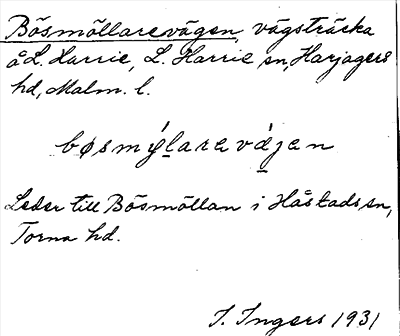 Bösmöllarevägen, vägsträcka
å L. Harrie, L. Harrie sn, Harjagers
hd, Malm. l.
bøsmý̱larevá̱jen
Leder till Bösmöllan i Håstads sn,
Torna hd.
I. Ingers 1931